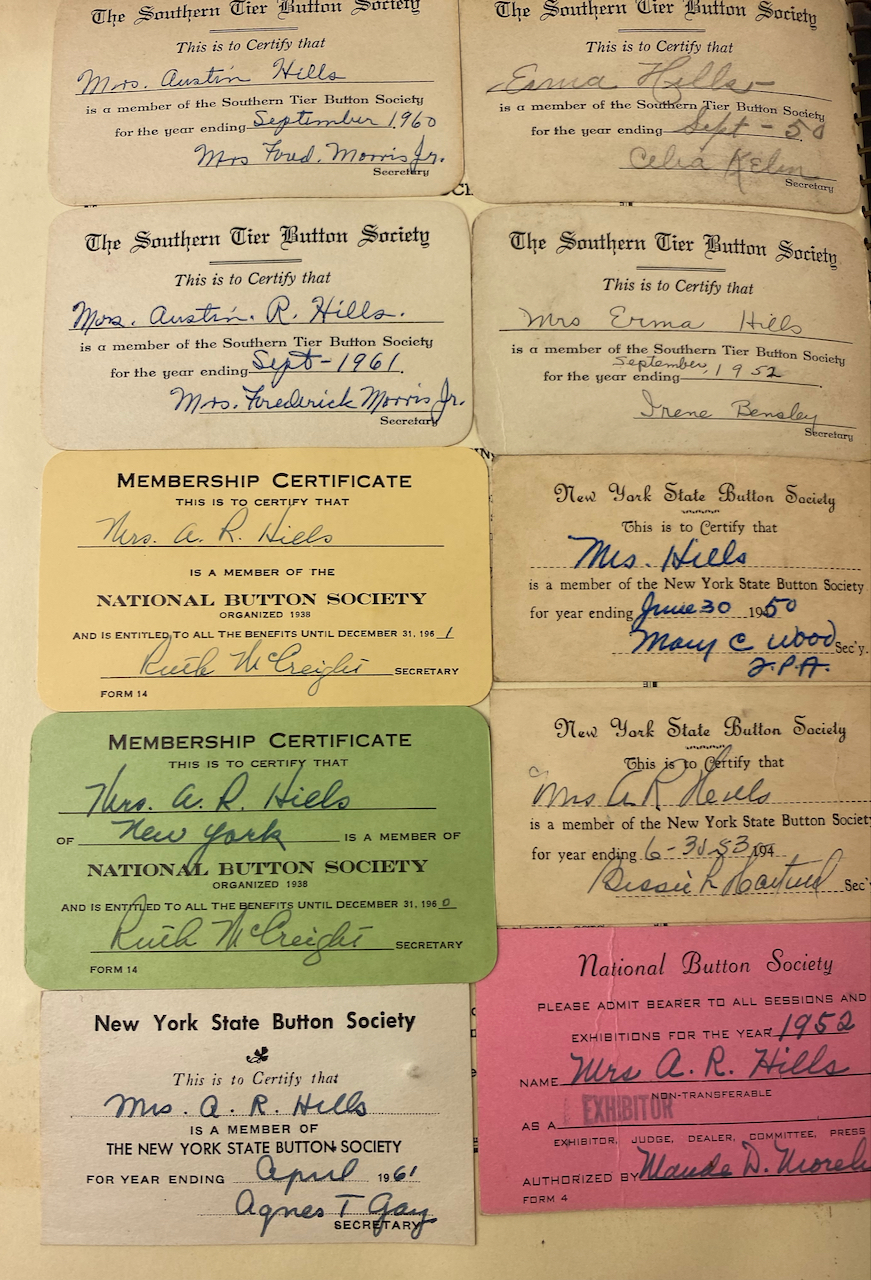 The Southern Tier Button Society
This is to Certify that
Mrs. Austin Hills
is a member of the Southern Tier Button Society
for the year ending September 1960
Mrs Fred. Morris Jr.
Secretary
The Southern Tier Button Society
This is to Certify that
Mrs. Austin. R. Hills.
is a member of the Southern Tier Button Society
for the year ending Sept-1961.
Mrs. Frederick Morris Jr.
Secretary
MEMBERSHIP CERTIFICATE
THIS IS TO CERTIFY THAT
Mrs. A. R. Hills
IS A MEMBER OF THE
NATIONAL BUTTON SOCIETY
ORGANIZED 1938
AND IS ENTITLED TO ALL THE BENEFITS UNTIL DECEMBER 31, 1961
Ruth McCreight SECRETARY
FORM 14
MEMBERSHIP CERTIFICATE
THIS IS TO CERTIFY THAT
Mrs. A. R. Hills
OF New York IS A MEMBER OF
NATIONAL BUTTON SOCIETY
ORGANIZED 1938
AND IS ENTITLED TO ALL THE BENEFITS UNTIL DECEMBER 31, 1960
Ruth McCreight SECRETARY
FORM 14
New York State Button Society
This is to Certify that
Mrs. A. R. Hills
IS A MEMBER OF
THE NEW YORK STATE BUTTON SOCIETY
FOR YEAR ENDING April 1961
Agnes T Gay
SECRETARY
The Southern Tier Button Society
This is to Certify that
Erma Hills
is a member of the Southern Tier Button Society
for the year ending Sept - 50
Celia
Secretary
The Southern Tier Button Society
This is to Certify that
Mrs Erma Hills
is a member of the Southern Tier Button Society
for the year ending September, 1952.
Irene Bensley
Secretary
New York State Button Society
This is to Certify that
Mrs. Hills
is a member of the New York State Button Society
for year ending June 30 1950
Mary C Wood Sec'y.
New York State Button Society
This is to Certify that
Mrs A R
is a member of the New York State Button Society
for year ending 6-30-53 194
Bessie L Sec'y
National Button Society
PLEASE ADMIT BEARER TO ALL SESSIONS AND
EXHIBITIONS FOR THE YEAR 1952
NAME Mrs A. R. Hills
NON-TRANSFERABLE
AS A EXHIBITOR
EXHIBITOR, JUDGE, DEALER, COMMITTEE, PRESS
AUTHORIZED BY Maude D.
FORM 4